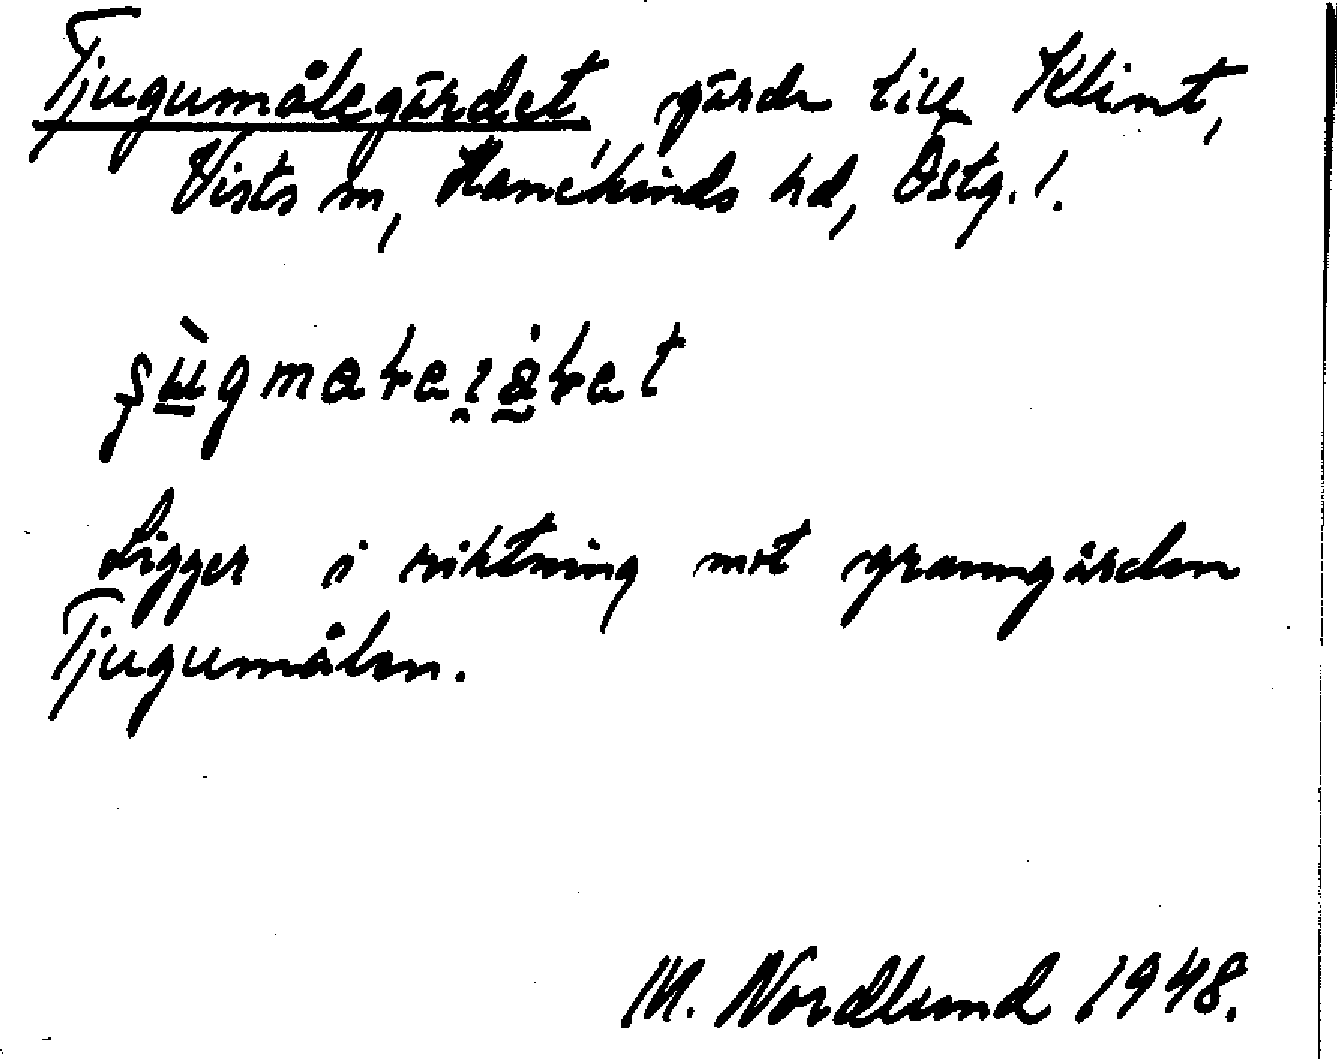 Tjugumålegärdet, gärde till Klint,
Vists sn, Hanekinds hd, Östg. l.
Ligger i riktning mot granngården
Tjugumålen.
M. Nordlund 1948.